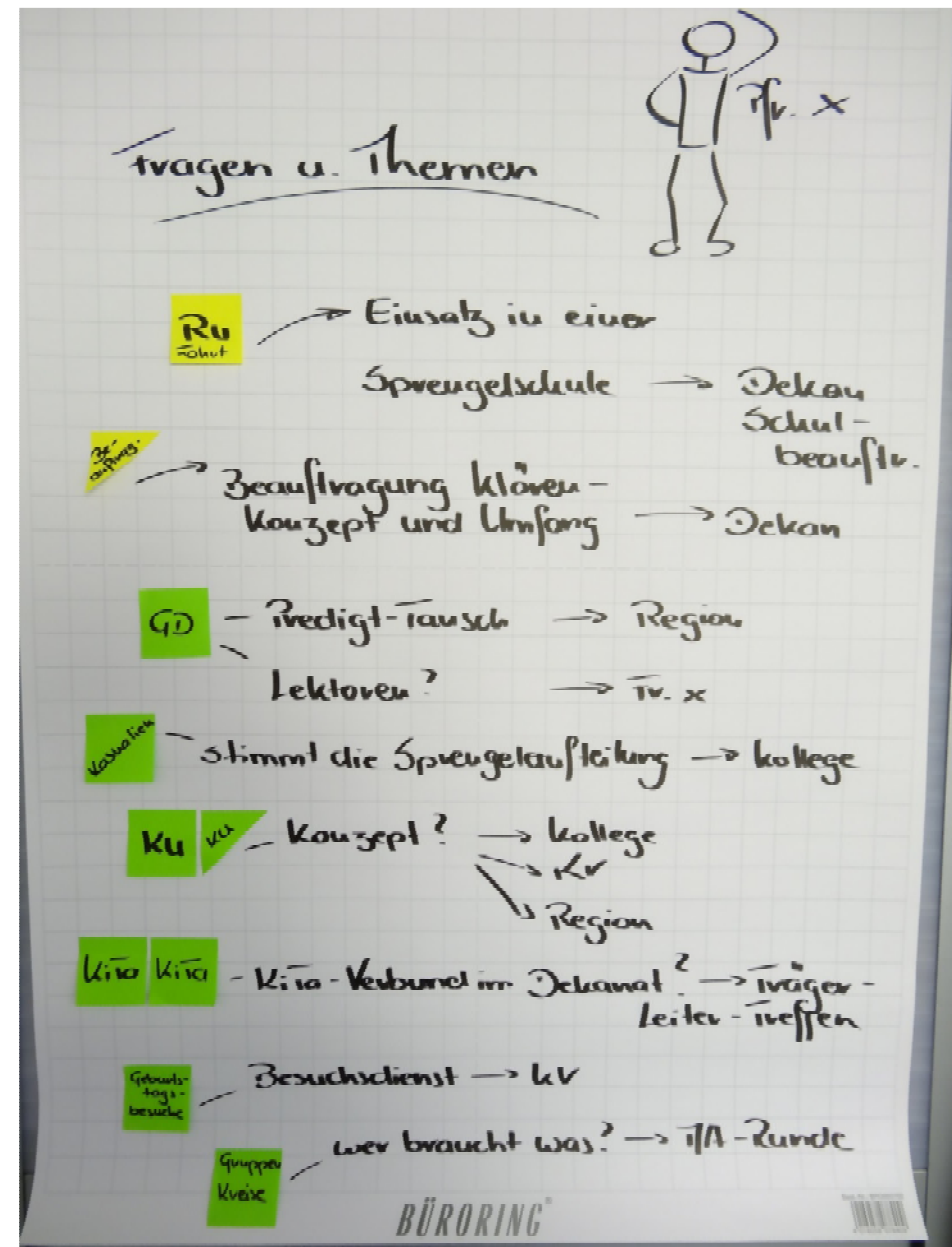 Pfr. x
Fragen u. Themen
Ru
Einsatz in einer
Sprengelschule → Dekan
Schul-
beauftr.
Be-
auftrag.
Beauftragung klären-
Konzept und Umfang → Dekan
GD - Predigt-Tausch → Region
Lektoren? → Fr. x
Kasualien
stimmt die Sprengelaufteilung → Kollege
KU KU - Konzept? → Kollege
KV
Region
Kita Kita - Kita-Verbund im Dekanat? → Träger-
Leiter-Treffen
Geburts-
tags-
besuche
Besuchsdienst → KV
wer braucht was? → P/A-Runde
Gruppen
Kreise
BÜRORING